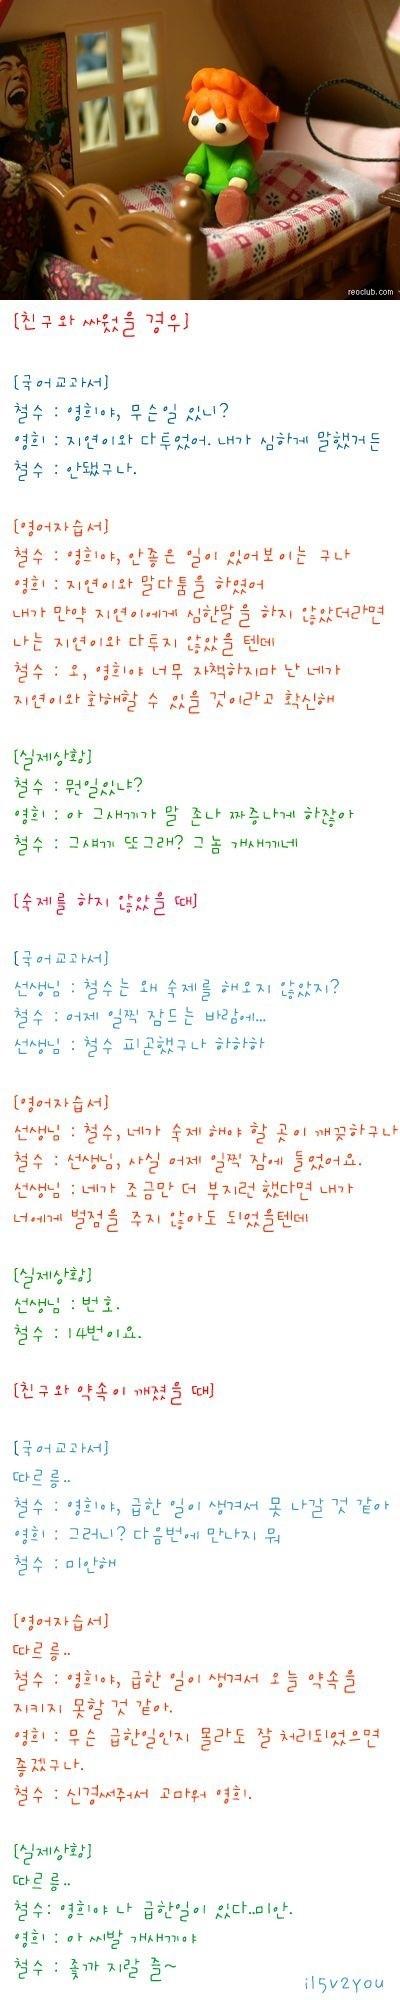 reoclub.com
[친구와 싸웠을 경우]
[국어교과서]
철수 : 영희야, 무슨일 있니?
영희 : 지연이와 다투었어. 내가 심하게 말했거든
철수 : 안됐구나.
[영어자습서]
철수 : 영희야, 안좋은 일이 있어보이는 구나
영희 : 지연이와 말다툼을 하였어
내가 만약 지연이에게 심한말을 하지 않았더라면
나는 지연이와 다투지 않았을 텐데
철수 : 오, 영희야 너무 자책하지마 난 네가
지연이와 화해할 수 있을 것이라고 확신해
[실제상황]
철수 : 뭔일있냐?
영희 : 아 그새끼가 말 존나 짜증나게 하잖아
철수 : 그새끼 또그래? 그 놈 개새끼네
[숙제를 하지 않았을 때]
[국어교과서]
선생님 : 철수는 왜 숙제를 해오지 않았지?
철수 : 어제 일찍 잠드는 바람에...
선생님 : 철수 피곤했구나 하하하
[영어자습서]
선생님 : 철수, 네가 숙제 해야 할 곳이 깨끗하구나
철수 : 선생님, 사실 어제 일찍 잠에 들었어요.
선생님 : 네가 조금만 더 부지런 했다면 내가
너에게 벌점을 주지 않아도 되었을텐데
[실제상황]
선생님 : 번호.
철수 : 14번이요.
[친구와 약속이 깨졌을 때]
[국어교과서]
따르릉..
철수 : 영희야, 급한 일이 생겨서 못 나갈 것 같아
영희 : 그러니? 다음번에 만나지 뭐
철수 : 미안해
[영어자습서]
따르릉..
철수 : 영희야, 급한 일이 생겨서 오늘 약속을
지키지 못할 것 같아.
영희 : 무슨 급한일인지 몰라도 잘 처리되었으면
좋겠구나.
철수 : 신경써주어서 고마워 영희.
[실제상황]
따르릉..
철수: 영희야 나 급한일이 있다..미안.
영희 : 아 씨발 개새끼야
철수 : 좆까 지랄 즐~
il5v2you